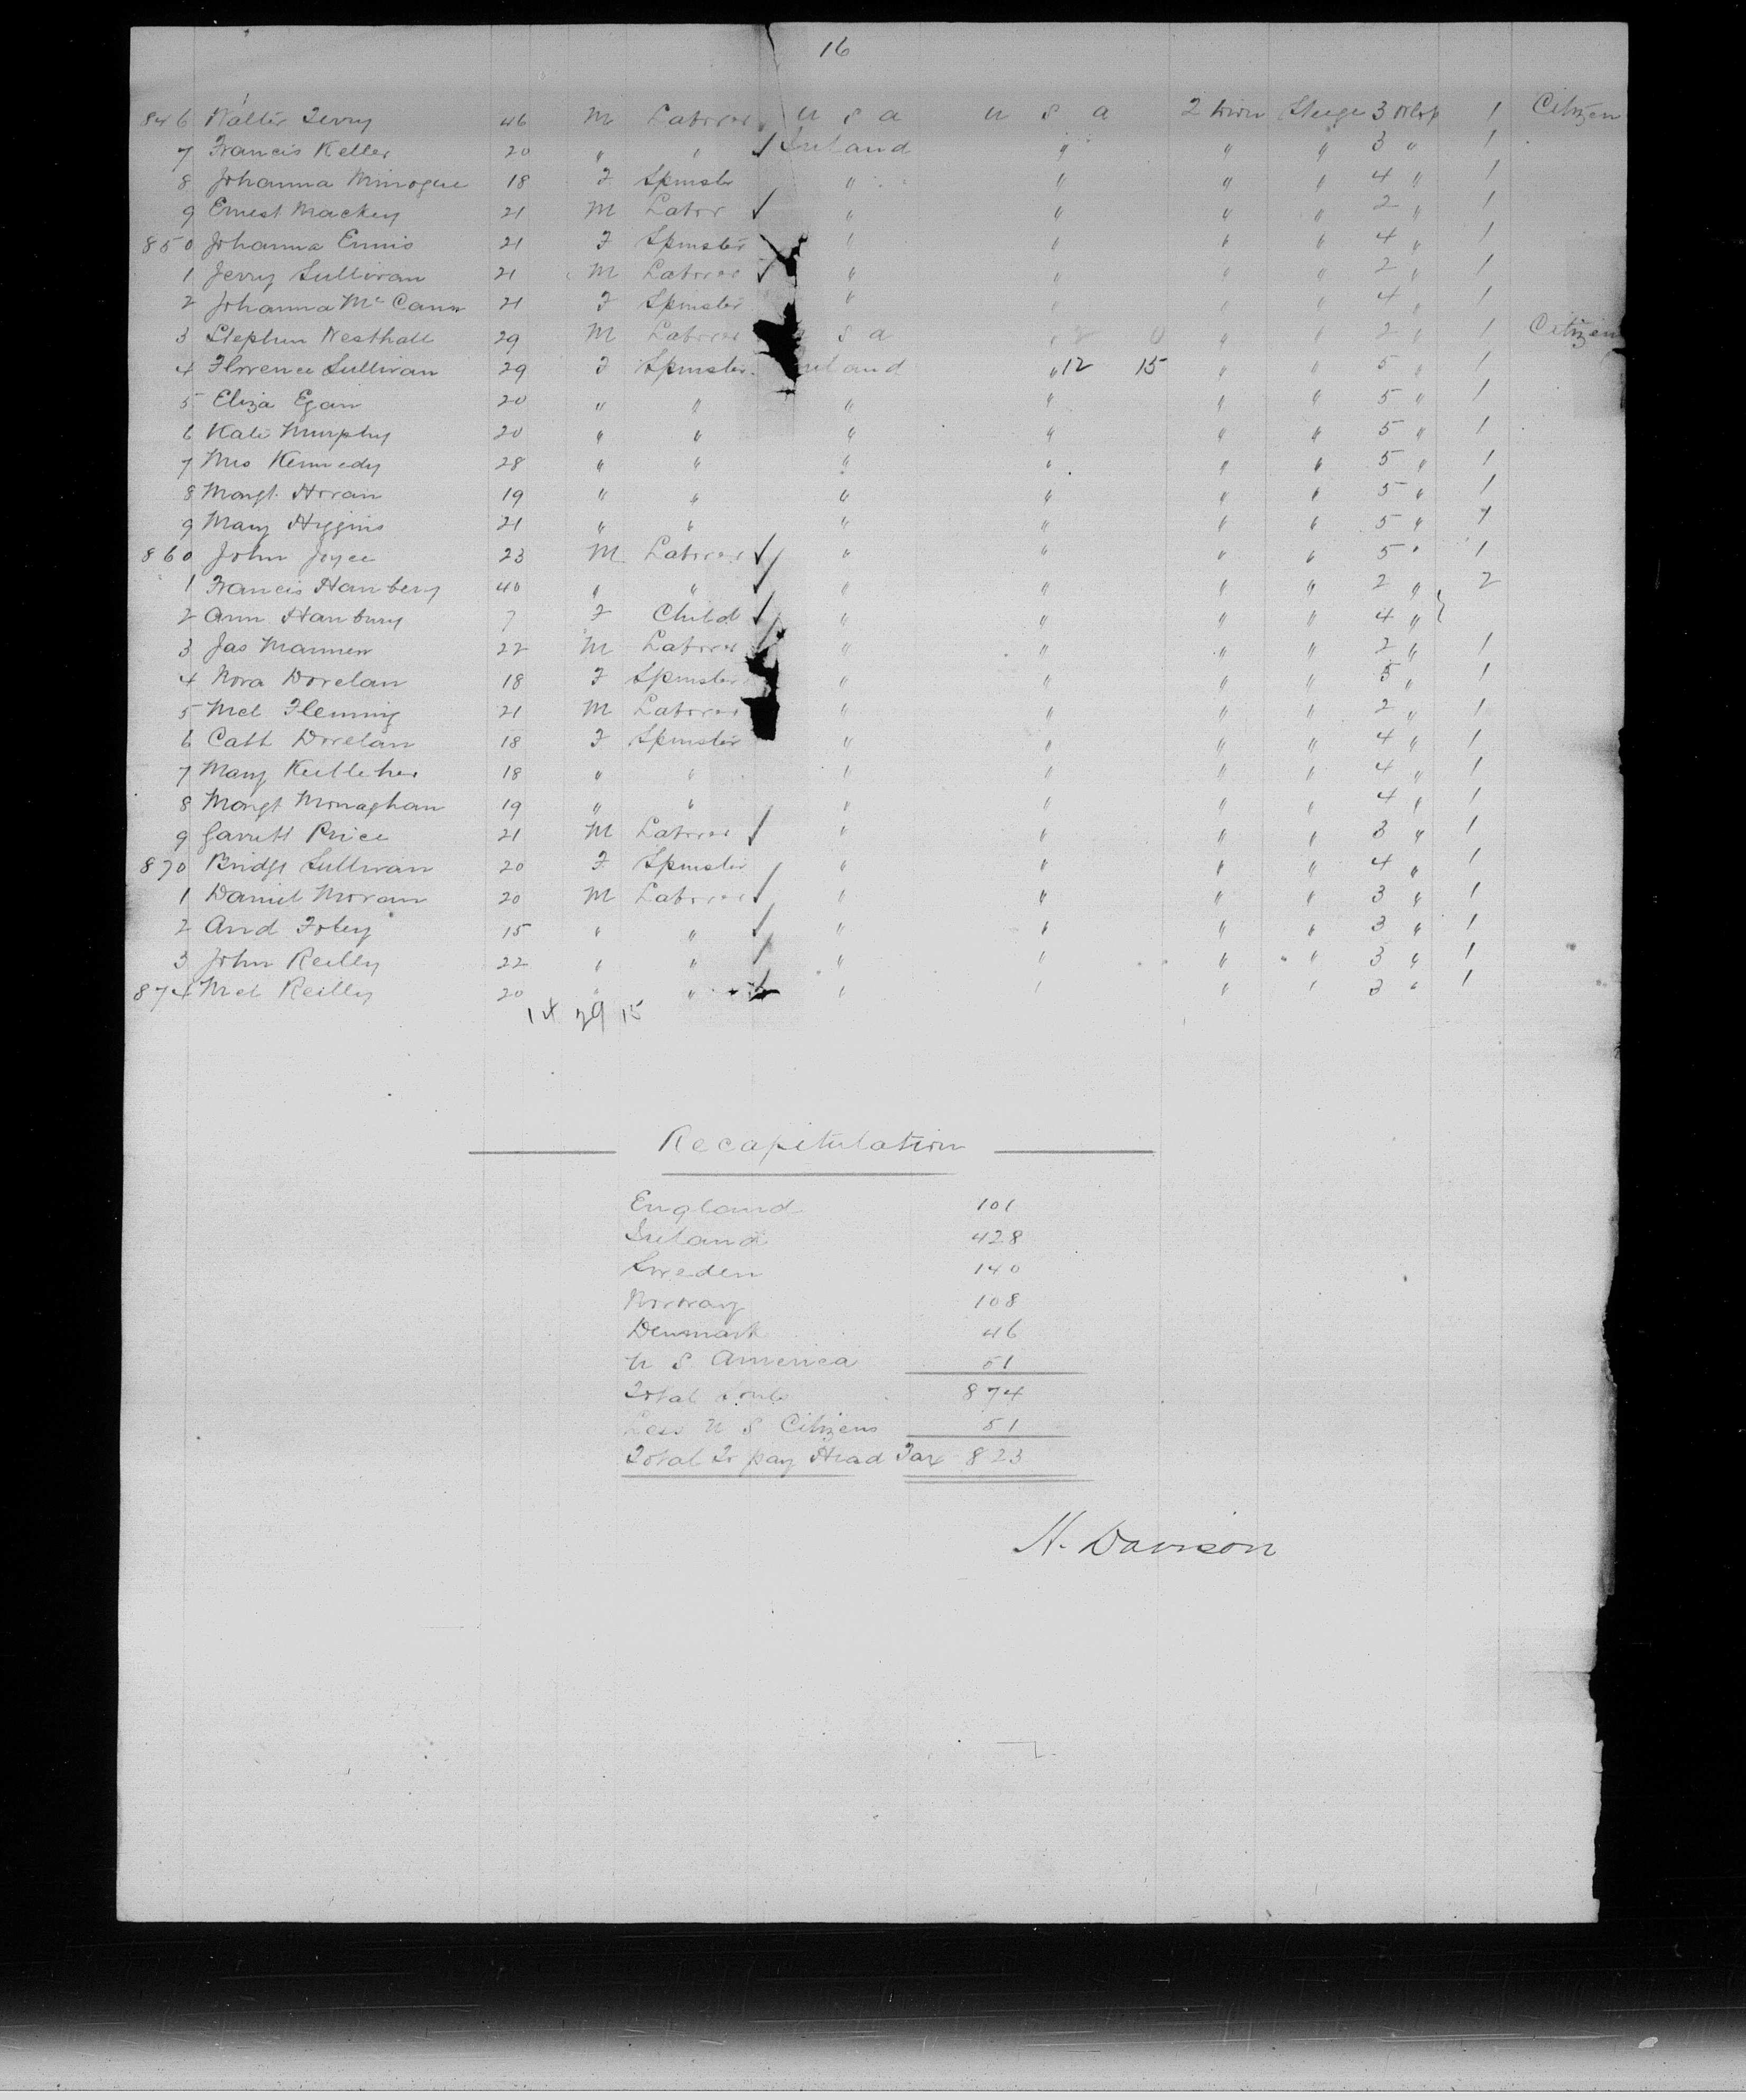 16
846 Walter Terry 46 M Laborer U S A U S A 2 Twin Steege 3 1 Citizen
7 Francis Keller 20 " " ✓ Ireland " " " 3 " 1
8 Johanna Minogue 18 F Spinster " " " " 4 " 1
9 Ernest Mackey 21 M Labor ✓ " " " " 2 " 1
850 Johanna Ennis 21 F Spinster " " " " 4 " 1
1 Jerry Sullivan 21 M Laborer ✓ " " " " 2 " 1
2 Johanna Mc Cann 21 F Spinster " " " " 4 " 1
3 Stephen Westhall 29 M Laborer S A " " " 2 " 1 Citizen
4 Florence Sullivan 29 F Spinster Ireland " 12 15 " " 5 " 1
5 Eliza Egan 20 " " " " " " 5 " 1
6 Kate Murphy 20 " " " " " " 5 " 1
7 Mrs Kennedy 28 " " " " " " 5 " 1
8 Margt Horan 19 " " " " " " 5 " 1
9 Mary Higgins 21 " " " " " " 5 " 1
860 John Joyce 23 M Laborer ✓ " " " " 5 " 1
1 Francis Hanbery 40 " " ✓ " " " " 2 " } 2
2 Ann Hanbury 7 F Child ✓ " " " " 4 "
3 Jas Mannen 22 M Laborer ✓ " " " " 2 " 1
4 Nora Dorelan 18 F Spinster " " " " 5 " 1
5 Mcl Fleming 21 M Laborer " " " " 2 " 1
6 Cath Dorelan 18 F Spinster " " " " 4 " 1
7 Mary Kelleher 18 " " " " " " 4 " 1
8 Margt Monaghan 19 " " " " " " 4 " 1
9 Garrett Price 21 M Laborer ✓ " " " " 3 " 1
870 Bridgt Sullivan 20 F Spinster " " " " 4 " 1
1 Daniel Moran 20 M Laborer ✓ " " " " 3 " 1
2 And Foley 15 " " ✓ " " " " 3 " 1
3 John Reilly 22 " " ✓ " " " " 3 " 1
874 Mcl Reilly 20 " " ✓ " " " " 3 " 1
14 29 15
Recapitulation
England 101
Ireland 428
Sweden 140
Norway 108
Denmark 46
U S America 51
Total Souls 874
Less U S Citizens 51
Total To pay Head Tax 823
H. Davison